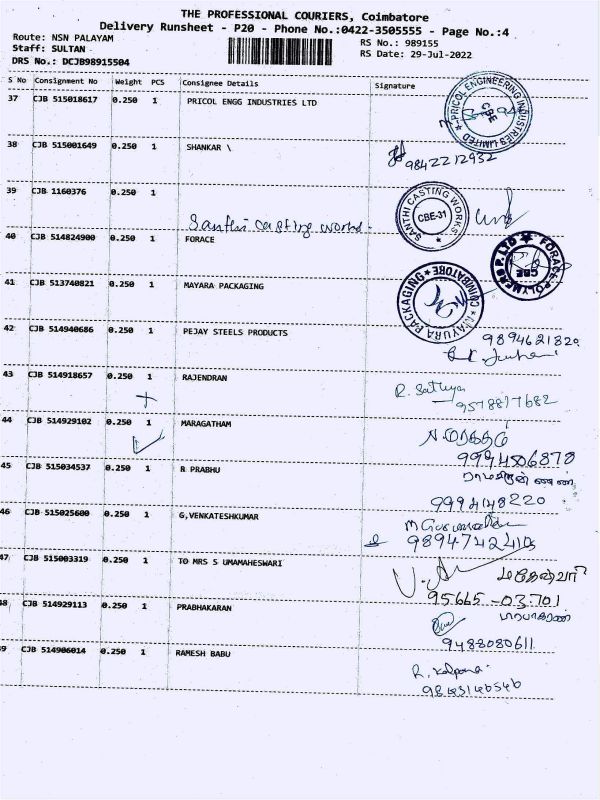 THE PROFESSIONAL COURIERS, Coimbatore
Delivery Runsheet - P20 - Phone No.:0422-3505555 - Page No.:4
Route: NSN PALAYAM
Staff: SULTAN
DRS No.: DCJB98915504
RS No.: 989155
RS Date: 29-Jul-2022
S No Consignment No Weight PCS Consignee Details Signature
37 CJB 515018617 0.250 1 PRICOL ENGG INDUSTRIES LTD
PRICOL ENGINEERING INDUSTRIES LIMITED CBE
38 CJB 515001649 0.250 1 SHANKAR \
9842212932
39 CJB 1160376 0.250 1
Santhi casting works.
SANTHI CASTING WORKS CBE-31
40 CJB 514824900 0.250 1 FORACE
FORACE POLYMERS P. LTD CBE
41 CJB 513740821 0.250 1 MAYARA PACKAGING
MAYURA PACKAGING COIMBATORE
42 CJB 514940686 0.250 1 PEJAY STEELS PRODUCTS
9894621820
43 CJB 514918657 0.250 1 RAJENDRAN
R. Sathya
9578817682
44 CJB 514929102 0.250 1 MARAGATHAM
9994506878
45 CJB 515034537 0.250 1 R PRABHU
9994148220
46 CJB 515025600 0.250 1 G,VENKATESHKUMAR
9894742410
47 CJB 515003319 0.250 1 TO MRS S UMAMAHESWARI
95665-03701
48 CJB 514929113 0.250 1 PRABHAKARAN
பிரபாகரன்
9488080611
49 CJB 514906014 0.250 1 RAMESH BABU
R. Kalpana